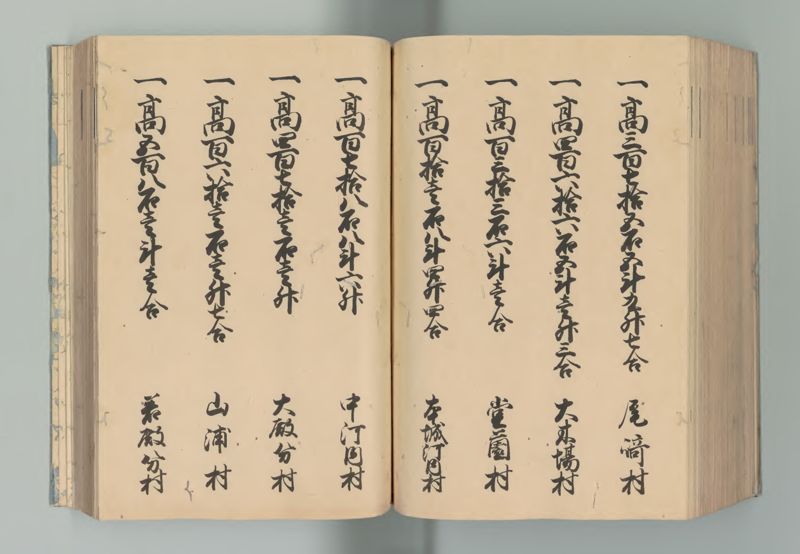 一高三百七拾五石五斗九升七合 尾﨑村
一高四百六拾六石五斗壱升三合 大末場村
一高百三拾三石六斗壱合 堂薗村
一高百拾壱石八斗四升四合 本城河内村
一高百七拾八石八斗六升 中河内村
一高四百七拾壱石壱升 大殿分村
一高百六拾壱石壱升七合 山浦村
一高五百八石壱斗壱合 若殿分村